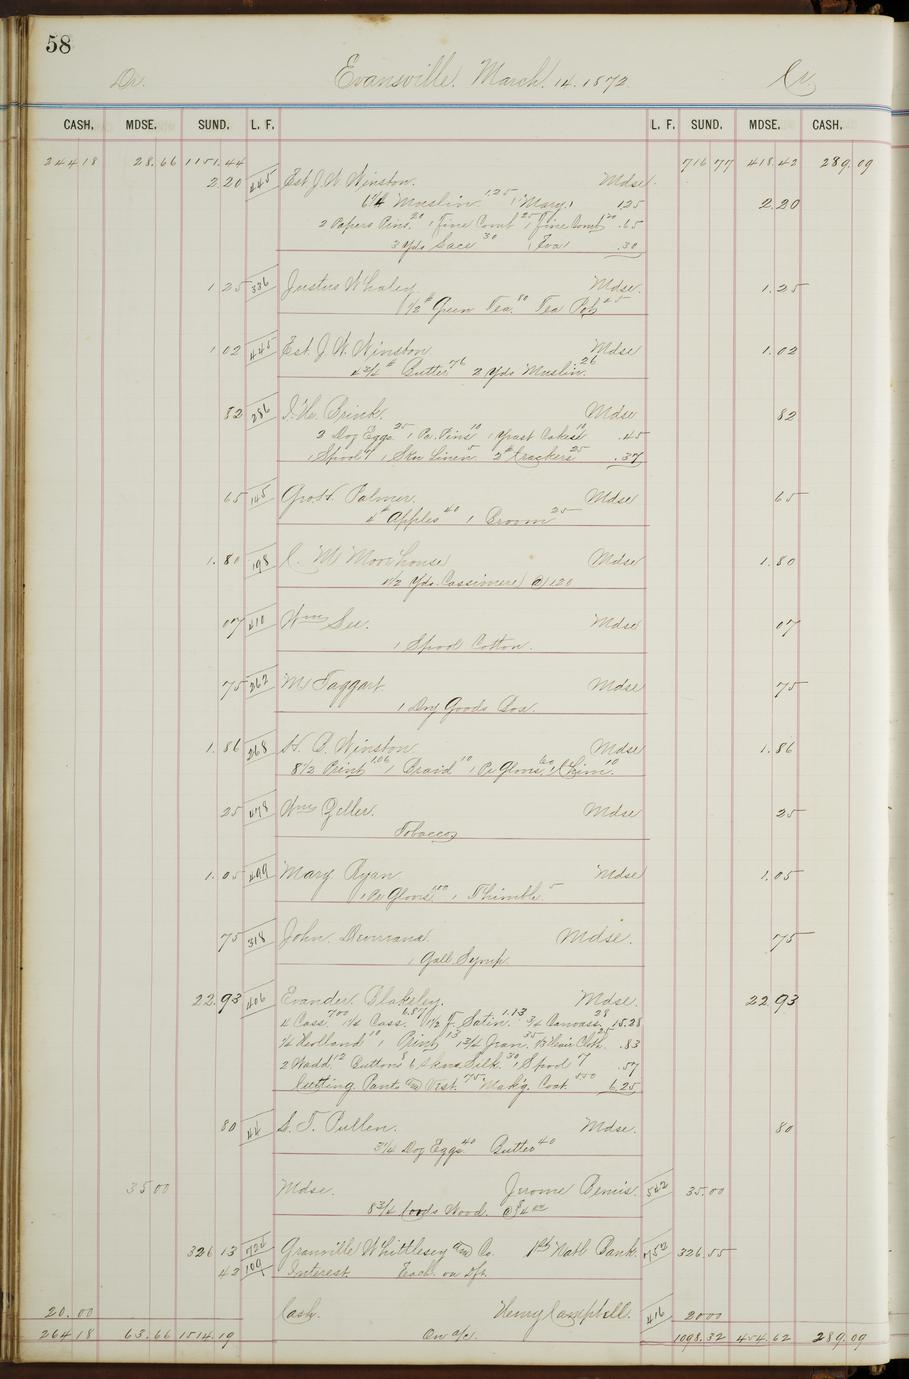 58
Dr. Evansville. March. 14. 1872 Cr
CASH. MDSE. SUND. L. F. L. F. SUND. MDSE. CASH.
244 18 28.66 1151.44 716 77 418.42 289.09
2.20 445 Est J. W. Winston. Mdse.
Muslin 1.25 (Mary) 125 2.20
2 Papers Pins 20 1 Fine Comb 25 1 Fine Comb 20 .65
3 Yds Lace 30 (Eva) .30
1 25 336 Justus Whaley Mdse. 1.25
1/2 # Green Tea. 80 Tea Pot
1 02 445 Est. J. W. Winston Mdse 1.02
4 3/4 # Butter 76 2 Yds Muslin. 26
82 286 Brink. Mdse 82
2 Doz Eggs. 25 1 Pa. Pins 10 1 Yeast Cakes 10 .45
1 Spool 7 1 Skn Linen 5 2 # Crackers 25 .37
65 145 Palmer. Mdse 65
4 # Apples 40 1 Broom 25
1.80 198 C. M. Moorhouse Mdse 1.80
1 1/2 Yds. Cassimere @ 120
07 410 Wm See. Mdse 07
1 Spool Cotton.
75 262 M Taggart Mdse 75
1 Dry Goods Box.
1.86 268 H. B. Winston Mdse 1.86
8 1/2 Print 1.06 1 Braid 10 1 Pr Gloves 60 1 10
25 478 Wm Geller. Mdse 25
Tobacco
1.05 499 Mary Ryan Mdse 1.05
1 Pr Gloves 100 1 Thimble 5
75 318 John. Mdse. 75
1 Gall. Syrup.
22.93 406 Evander. Blaksley. Mdse. 22 93
4 Cass. 700 1 1/4 Cass. 6.87 1 1/2 F. Satin. 1.13 3/4 Canvass. 28 15.28
1/4 Holland 10 1 Print 13 1 3/4 Jean. 35 1/3 Hair Cloth. 25 .83
2 Wadd. 12 Buttons 8 6 Skns Silk. 30 1 Spool 7 .57
Cutting Pants and Vest. 75 Mak'g. Coat. 550 6.25
80 44 S. T. Pullen. Mdse. 80
3 1/4 Doz Eggs. 40 Butter 40
35 00 Mdse. Jerome Bemis. 562 35.00
8 3/4 Cords Wood. @ $4 00
326 13 724 Granville Whittlesey and Co. 1st Natl Bank. 752 326.55
42 100 Interest. Exch. on Dft.
20.00 Cash. Henry Campbell. 416 20 00
264 18 63.66 1514.19 On a/c. 1098.32 454.62 289.09